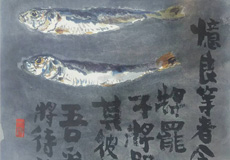 憶良等者今
將罷
子將
其彼
吾
將待